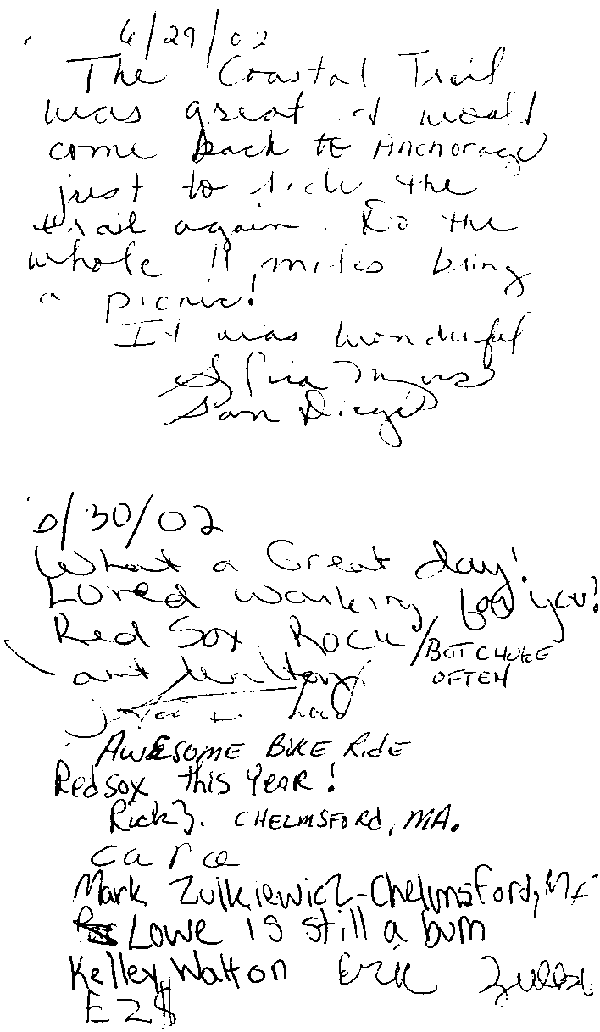 6/29/02
The Coastal Trail
was great I would
come back to Anchorage
just to ride the
trail again. Do the
whole 11 miles bring
a picnic!
It was wonderful
San Diego
6/30/02
What a Great day!
Loved working for you!
Red Sox Rock / BUT CHOKE
OFTEN
AWESOME BIKE RIDE
Redsox this YEAR!
Rick Z. CHELMSFORD, MA.
Mark Zulkiewicz-Chelmsford, MA
Lowe is still a bum
Kelley Walton Eric
EZ$